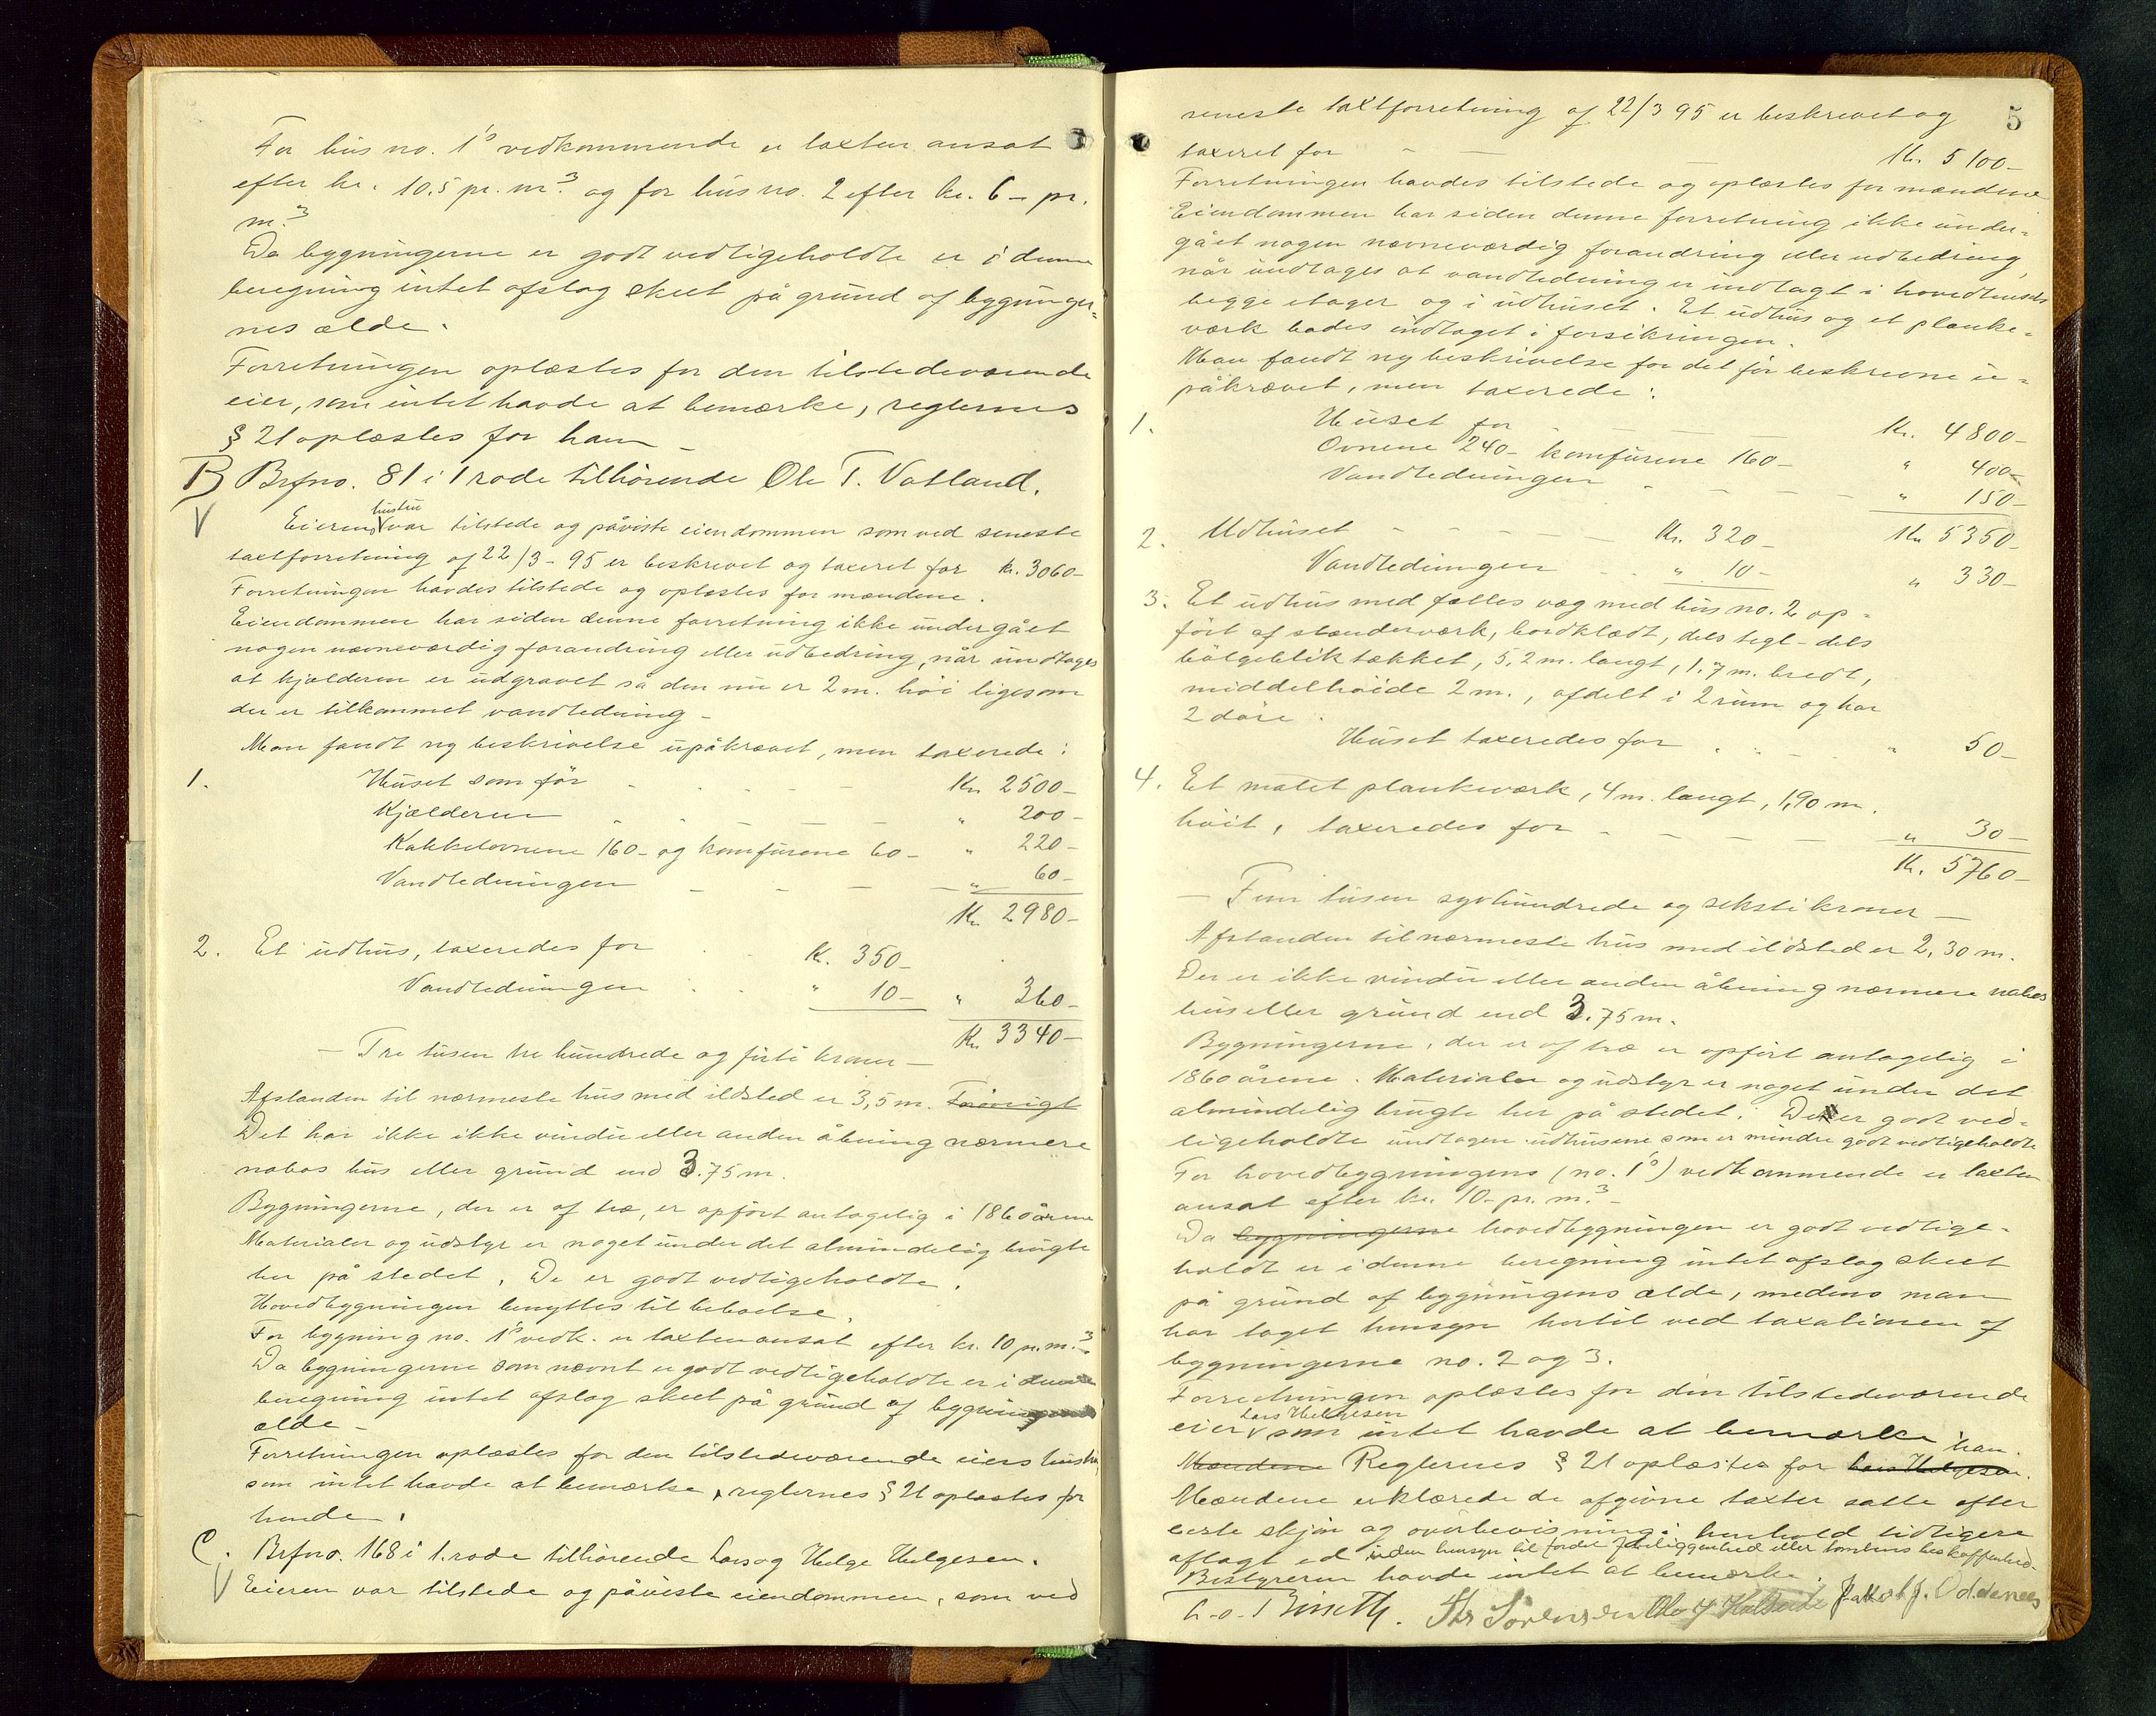 For hus no. 1's vedkommende er taxten ansat
efter kr. 10.5 pr. m.³ og for hus no. 2 efter kr. 6 - pr.
m.³
Da bygningerne er godt vedligeholdte er i denne
beregning intet afslag skeet på grund af bygninger=
nes ælde.
Forretningen oplæstes for den tilstedeværende
eier, som intet havde at bemærke, reglernes
§ 21 oplæstes for ham -
B Brfno. 81 i 1 rode tilhörende Ole T. Vatland.
hustru
V Eierens var tilstede og påviste eiendommen som ved seneste
taxtforretning af 22/3 - 95 er beskrevet og taxeret for kr. 3060-
Forretningen havdes tilstede og oplæstes for mændene.
Eiendommen har siden denne forretning ikke undergået
nogen nævneværdig forandring eller udbedring, når undtages
at kjælderen er udgravet så den nu er 2 m. höi ligesom
der er tilkommet vandledning -
Man fandt ny beskrivelse upåkrævet, men taxerede:
1. Huset som för - - - - Kr. 2500-
Kjælderen - - - - " 200-
Kakkelovnene 160- og komfurene 60- " 220-
Vandledningen - - - - " 60-
Kr. 2980-
2. Et udhus, taxeredes for - - K. 350-
Vandledningen - - " 10- " 360-
Kr. 3340-
- Tre tusen tre hundrede og firti kroner -
Afstanden til nærmeste hus med ildsted er 3,5 m. Forövrigt
Det har ikke ikke vindu eller anden åbning nærmere
nabos hus eller grund end 3.75 m.
Bygningerne, der er af træ, er opfört antagelig i 1860 årene
Materialer og udstyr er noget under det almindelig brugte
her på stedet. De er godt vedligeholdte.
Hovedbygningen benyttes til beboelse.
For bygning no. 1's vedk. er taxten ansat efter kr. 10 pr. m.³-
Da bygningerne som nævnt er godt vedligeholdte er i denne
beregning intet afslag skeet på grund af bygningens
ælde -
Forretningen oplæstes for den tilstedeværende eiers hustru,
som intet havde at bemærke, reglernes § 21 oplæstes for
hende.
C. Brfno. 168 i 1. rode tilhörende Lars og Helge Helgesen.
V Eieren var tilstede og påviste eiendommen, som ved
5
seneste taxtforretning af 22/3 95 er beskrevet og
taxeret for - - - Kr. 5100-
Forretningen havdes tilstede og oplæstes for mændene
Eiendommen har siden denne forretning ikke under=
gået nogen nævneværdig forandring eller udbedring,
når undtages at vandledning er indlagt i hovedhusets
begge etager og i udhuset. Et udhus og et planke=
værk bades indtaget i forsikringen.
Man fandt ny beskrivelse for det för beskrevne u=
påkrævet, men taxerede:
1. Huset for - - - Kr. 4800-
Ovnene 240- komfurene 160- " 400-
Vandledningen - - - - " 150-
Kr. 5350-
2. Udhuset - - - - Kr. 320-
Vandledningen - - " 10- " 330-
3. Et udhus med fælles væg med hus no. 2 op=
fört af stænderværk, bordklædt, dels tegl- dels
bölgebliktækket, 5,2 m. langt, 1.7 m. bredt,
middelhöide 2 m., afdelt i 2 rum og har
2 döre.
Huset taxeredes for - - - " 50-
4. Et malet plankeværk, 4 m. langt, 1,90 m.
höit, taxeredes for - - - - " 30-
Kr. 5760-
- Fem tusen syvhundrede og seksti kroner -
Afstanden til nærmeste hus med ildsted er 2,30 m.
Der er ikke vindu eller anden åbning nærmere nabos
hus eller grund end 3.75 m.
Bygningerne, der er af træ er opfört antagelig i
1860 årene. Materialer og udstyr er noget under det
almindelig brugte her på stedet. De er godt ved=
ligeholdte undtagen udhusene som er mindre godt vedligeholdte
For hovedbygningens (no. 1's) vedkommende er taxten
ansat efter kr. 10- pr. m.³-
Da bygningerne hovedbygningen er godt vedlige=
holdt er i denne beregning intet afslag skeet
på grund af bygningens ælde, medens man
har taget hensyn hertil ved taxationen af
bygningerne no. 2 og 3.
Forretningen oplæstes for den tilstedeværende
Lars Helgesen
eier som intet havde at bemærke
ham.
Mændene Reglernes § 21 oplæstes for Lars Helgesen.
Mændene erklærede de afgivne taxter satte efter
beste skjön og overbevisning i henhold tidligere
aflagt ed uden hensyn til fordel af beliggenhed eller tomtens beskaffenhed.
Bestyreren havde intet at bemærke.
Ths Sörensen Jakob J. Oddenes